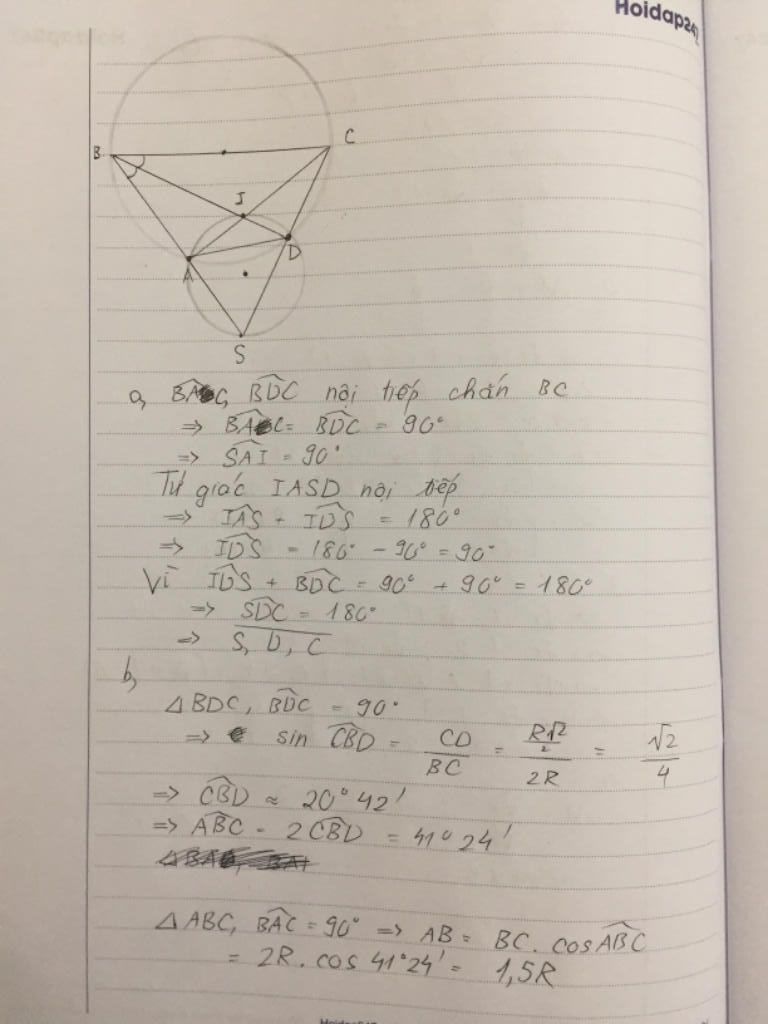 Hoidap247
B
C
I
D
A
S
a, BAC, BDC nội tiếp chắn BC
⇒ BAC = BDC = 90°
⇒ SAI = 90°
Tứ giác IASD nội tiếp
⇒ IAS + IDS = 180°
⇒ IDS = 180° - 90° = 90°
Vì IDS + BDC = 90° + 90° = 180°
⇒ SDC = 180°
⇒ S, D, C
b,
△BDC, BDC = 90°
⇒ sin CBD = CD/BC = (R√2/2)/2R = √2/4
⇒ CBD ≈ 20°42'
⇒ ABC = 2CBD = 41°24'
△ABC, BAC = 90° ⇒ AB = BC. cosABC
= 2R. cos 41°24' = 1,5R